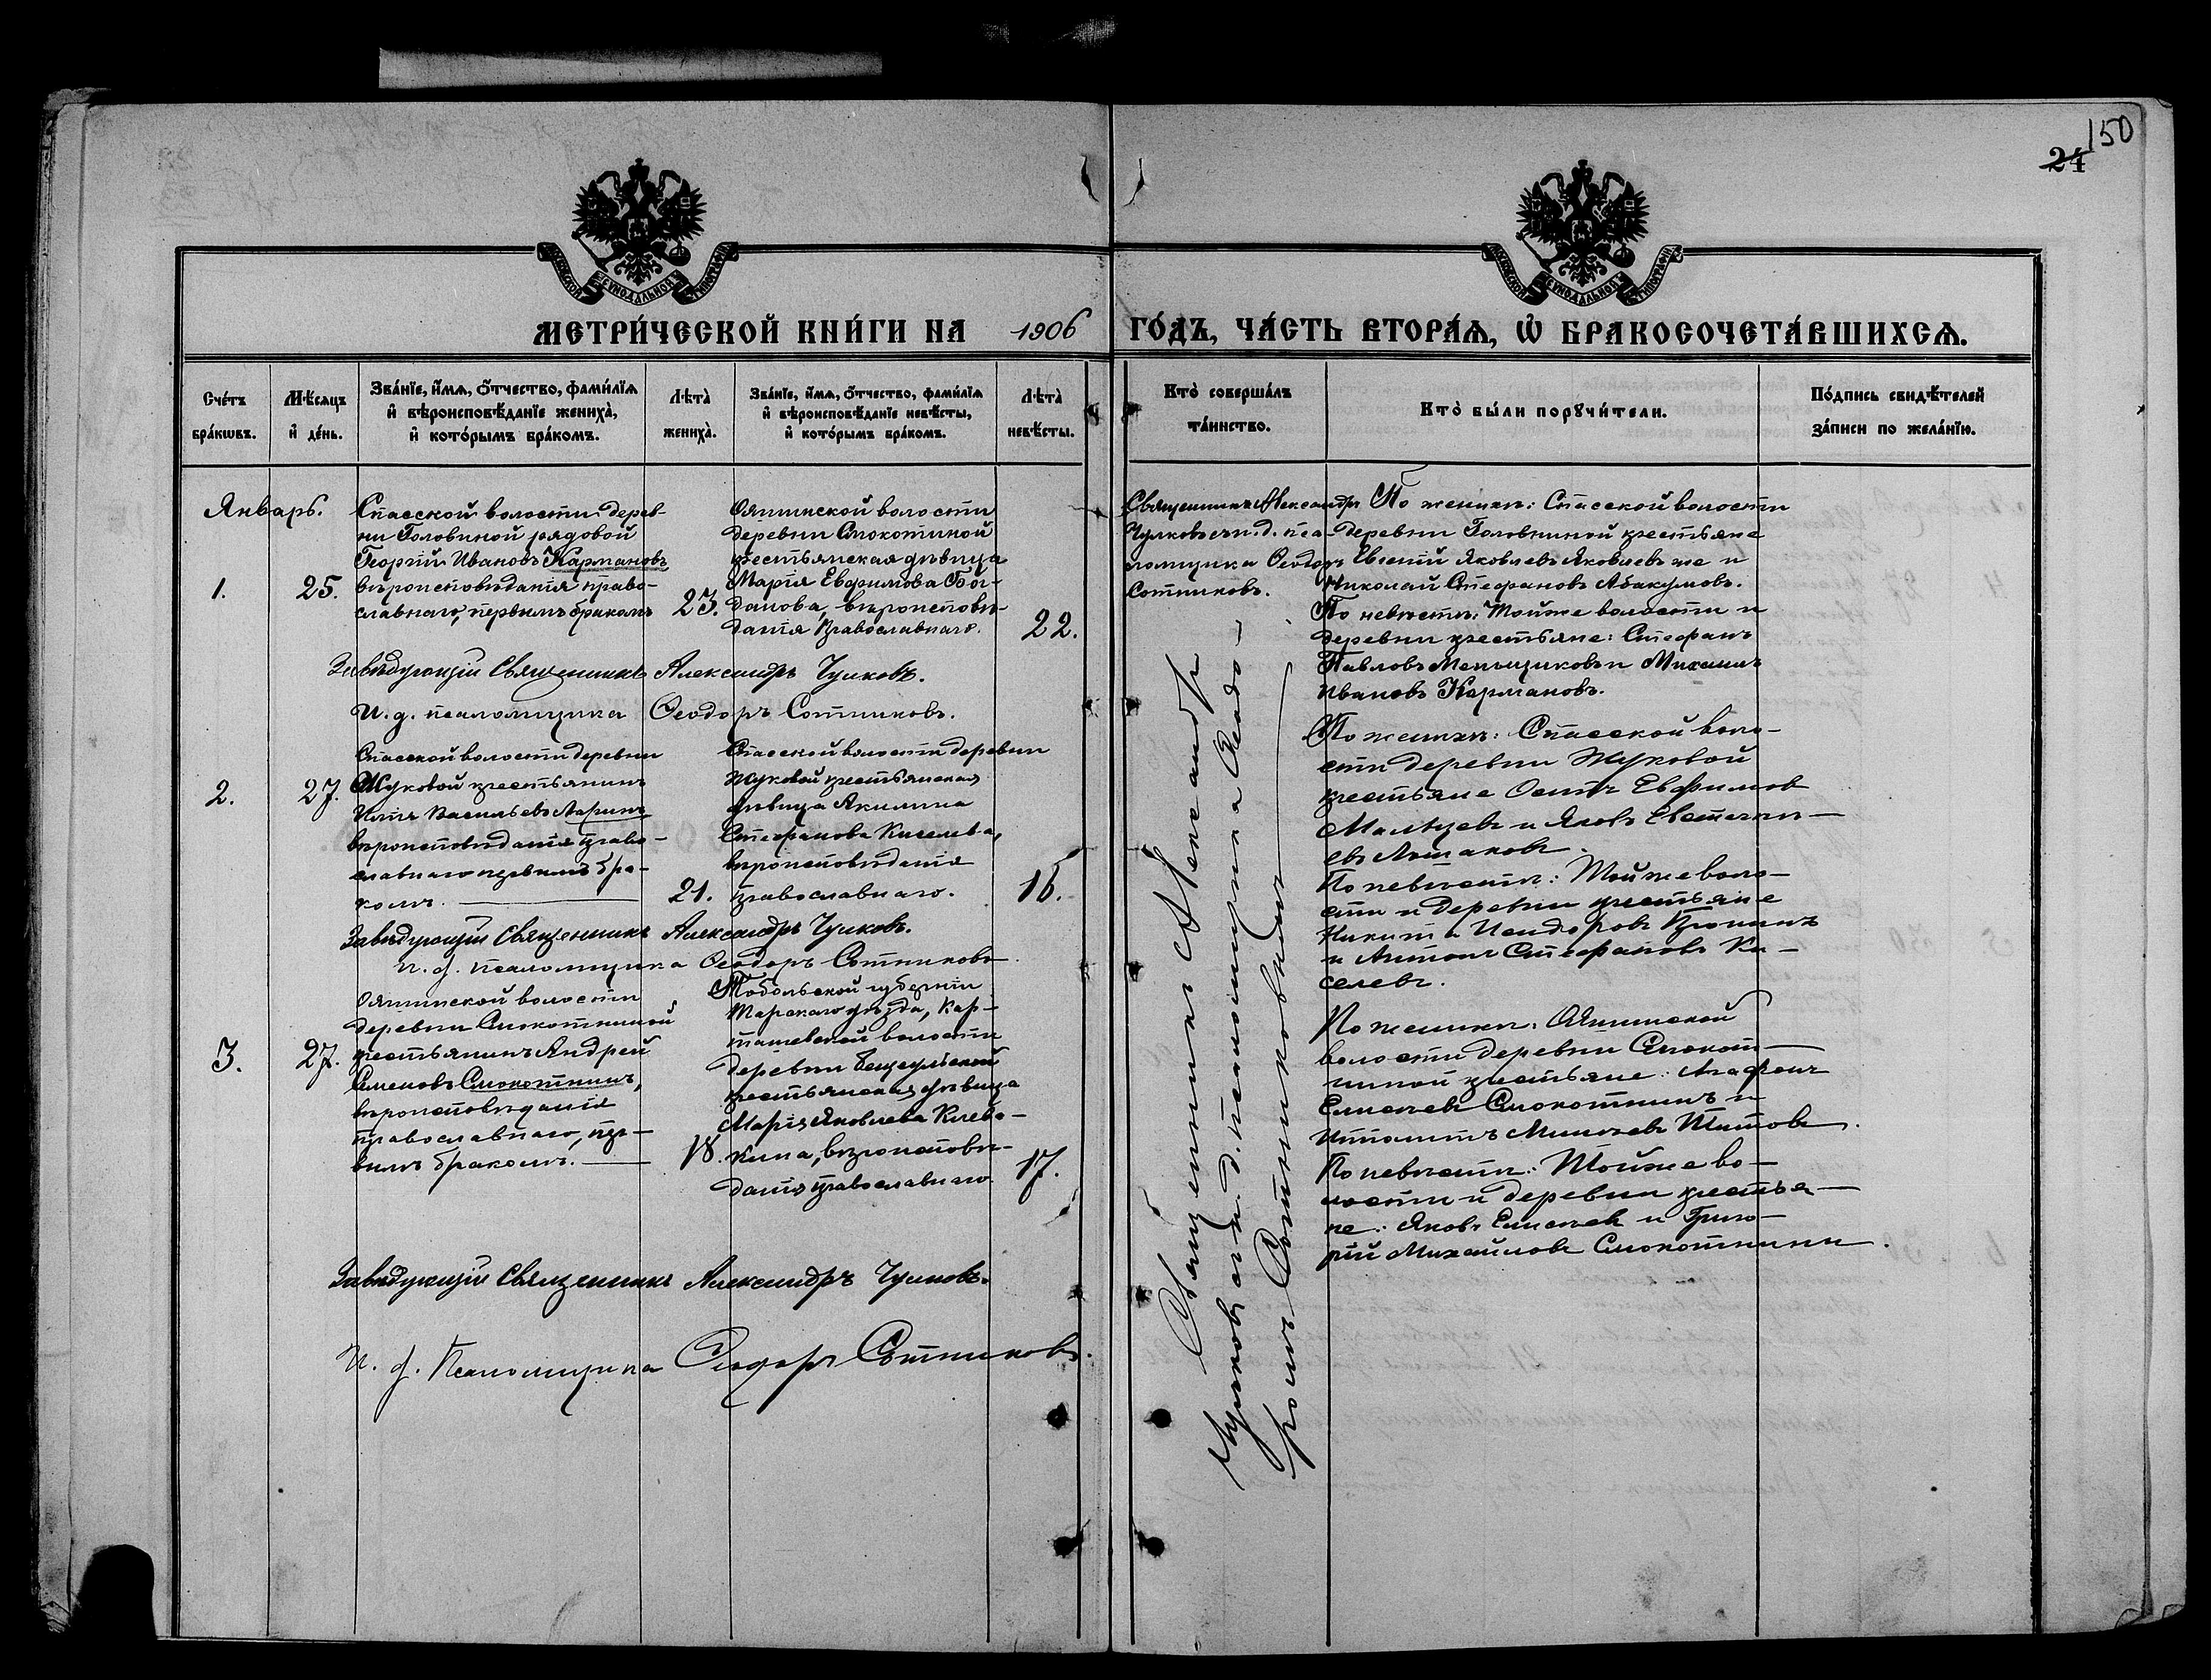 150
24
МОСКОВСКОЙ СѴНОДАЛЬНОЙ ТИПОГРАФІИ
МОСКОВСКОЙ СѴНОДАЛЬНОЙ ТИПОГРАФІИ
МЕТРИ́ЧЕСКОЙ КНИ́ГИ НА 1906
ГО́ДЪ, ЧА́СТЬ ВТОРА́Ѧ, Ѽ БРАКОСОЧЕТА́ВШИХСѦ.
Сче́тъ
бра́кѡвъ.
Мѣ́сяцъ
и҆ де́нь.
Зва́нїе, и҆́мѧ, ѻ҆́тчество, фами́лїѧ
и҆ вѣроисповѣ́данїе жениха̀,
и҆ кото́рымъ бра́комъ.
Лѣта̀
жениха̀.
Зва́нїе, и҆́мѧ, ѻ҆́тчество, фами́лїѧ
и҆ вѣроисповѣ́данїе невѣ́сты,
и҆ кото́рымъ бра́комъ.
Лѣта̀
невѣ́сты.
Кто̀ соверша́лъ
та́инство.
Кто̀ бы́ли порꙋчи́тели.
По́дпись свидѣ́телей
за́писи по жела́нїю.
Январь.
1.
25.
Спасской волости дерев-
ни Головиной рядовой
Георгій Ивановъ Кармановъ
вѣроисповѣданія право-
славнаго, первымъ бракомъ
23.
Ояшинской волости
деревни Смокотиной
крестьянская дѣвица
Марія Евфимова Бог-
данова, вѣроисповѣ-
данія Православнаго.
22.
Священникъ Александръ
Чулковъ с и. д. пса-
ломщика Ѳеодоръ
Сотниковъ.
По женихѣ: Спасской волости
деревни Головиной крестьяне
Евгеній Яковлевъ Яковлевъ же и
Николай Стефановъ Абакумовъ.
По невѣстѣ: Тойже волости и
деревни крестьяне: Стефанъ
Павловъ Меньщиковъ и Михаилъ
Ивановъ Кармановъ.
Завѣдующій Священникъ Александръ Чулковъ.
И. д. псаломщика Ѳеодоръ Сотниковъ.
2.
27.
Спасской волости деревни
Жуковой крестьянинъ
Васильевъ Ларинъ
вѣроисповѣданія право-
славнаго первымъ бра-
комъ.
21.
Спасской волости деревни
Жуковой крестьянская
дѣвица Акилина
Стефанова Киселева,
вѣроисповѣданія
православнаго.
16.
Священникъ Александръ
Чулковъ с и. д. псаломщика Ѳеодо-
ромъ Сотниковымъ
По женихѣ: Спасской воло-
сти деревни Жуковой
крестьяне Осипъ Евфимов
Мальцевъ и Яковъ Евстигне-
евъ
По невѣстѣ: Тойже воло-
сти и деревни крестьяне
Никита Исидоровъ
и Антонъ Стефановъ Ки-
селевъ.
Завѣдующій Священникъ Александръ Чулковъ.
И. д. псаломщика Ѳеодоръ Сотниковъ
3.
27.
Ояшинской волости
деревни Смокотиной
крестьянинъ Андрей
Семеновъ Смокотнинъ,
вѣроисповѣданія
православнаго, пер-
вымъ бракомъ.
18.
Тобольской губерніи
Тарскаго уѣзда, Кар-
ташевской волости
деревни
крестьянская дѣвица
Марія Яковлева Клева-
кина, вѣроисповѣ-
данія православнаго.
17.
По женихѣ: Ояшинской
волости деревни Смокот-
ниной крестьяне: Агафонъ
Смокотнинъ и
Ипполитъ Титовъ.
По невѣстѣ: Тойже во-
лости и деревни крестья-
не: Яковъ и Григо-
рій Михайловъ Смокотнины.
Завѣдующій Священникъ Александръ Чулковъ.
И. д. Псаломщика Ѳеодоръ Сотниковъ.